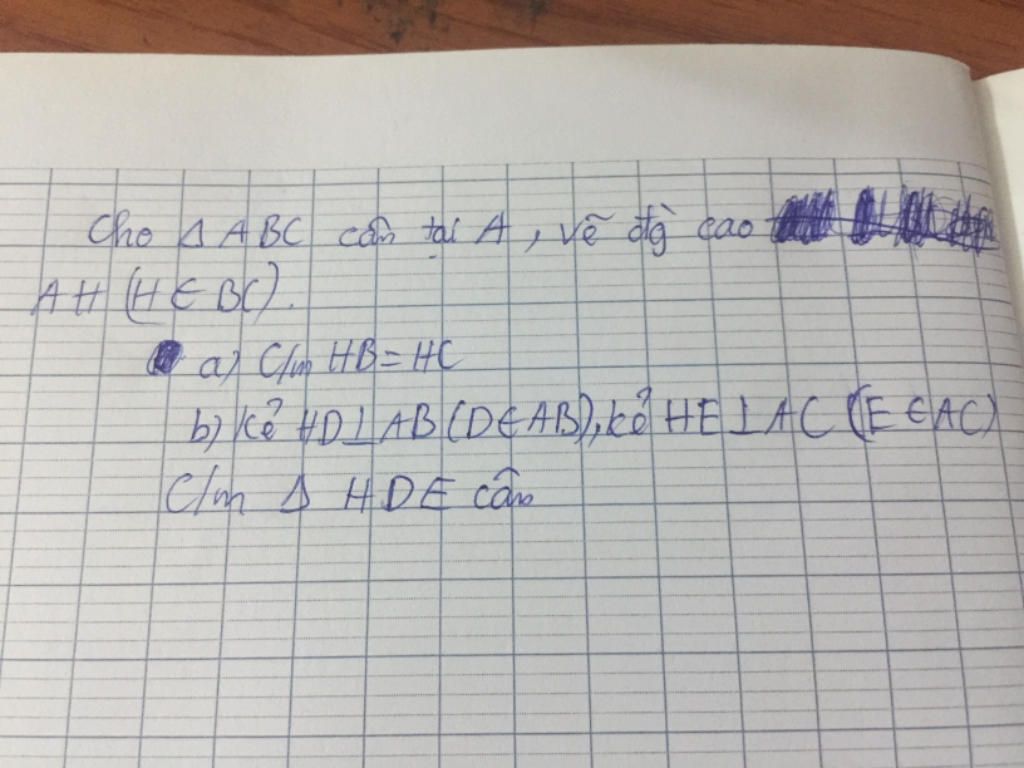 Cho Δ ABC cân tại A, vẽ đg̀ cao
AH (H ∈ BC).
a) C/m HB = HC
b) Kẻ HD ⊥ AB (D ∈ AB), kẻ HE ⊥ AC (E ∈ AC)
C/m Δ HDE cân